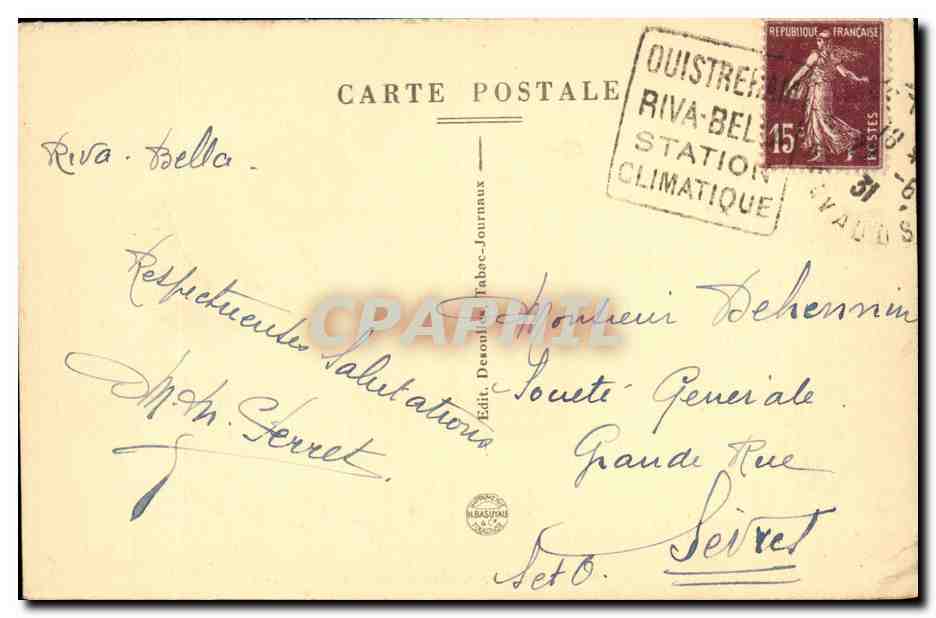 CARTE POSTALE
OUISTREHAM
RIVA-BEL
STATION
CLIMATIQUE
REPUBLIQUE FRANÇAISE
15c
POSTES
18
-6
31
VADOS
Riva-Bella-
Respectueuses Salutations
M. M. Ferret
Edit. Tabac-Journaux
CPAPHIL
Monsieur Dehennin
Société Générale
Grande Rue
Sèvres
S et O.
H. BASUYAU
& Cie
TOULOUSE